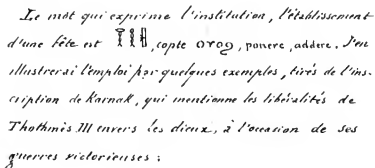 Le mot qui exprime l'institution, l'établissement
d'une fête est , copte ⲟⲩⲟϩ, ponere, addere. J'en
illustrerai l'emploi par quelques exemples, tirés de l'ins-
cription de Karnak, qui mentionne les libéralités de
Thothmis III envers les dieux, à l'occasion de ses
guerres victorieuses :